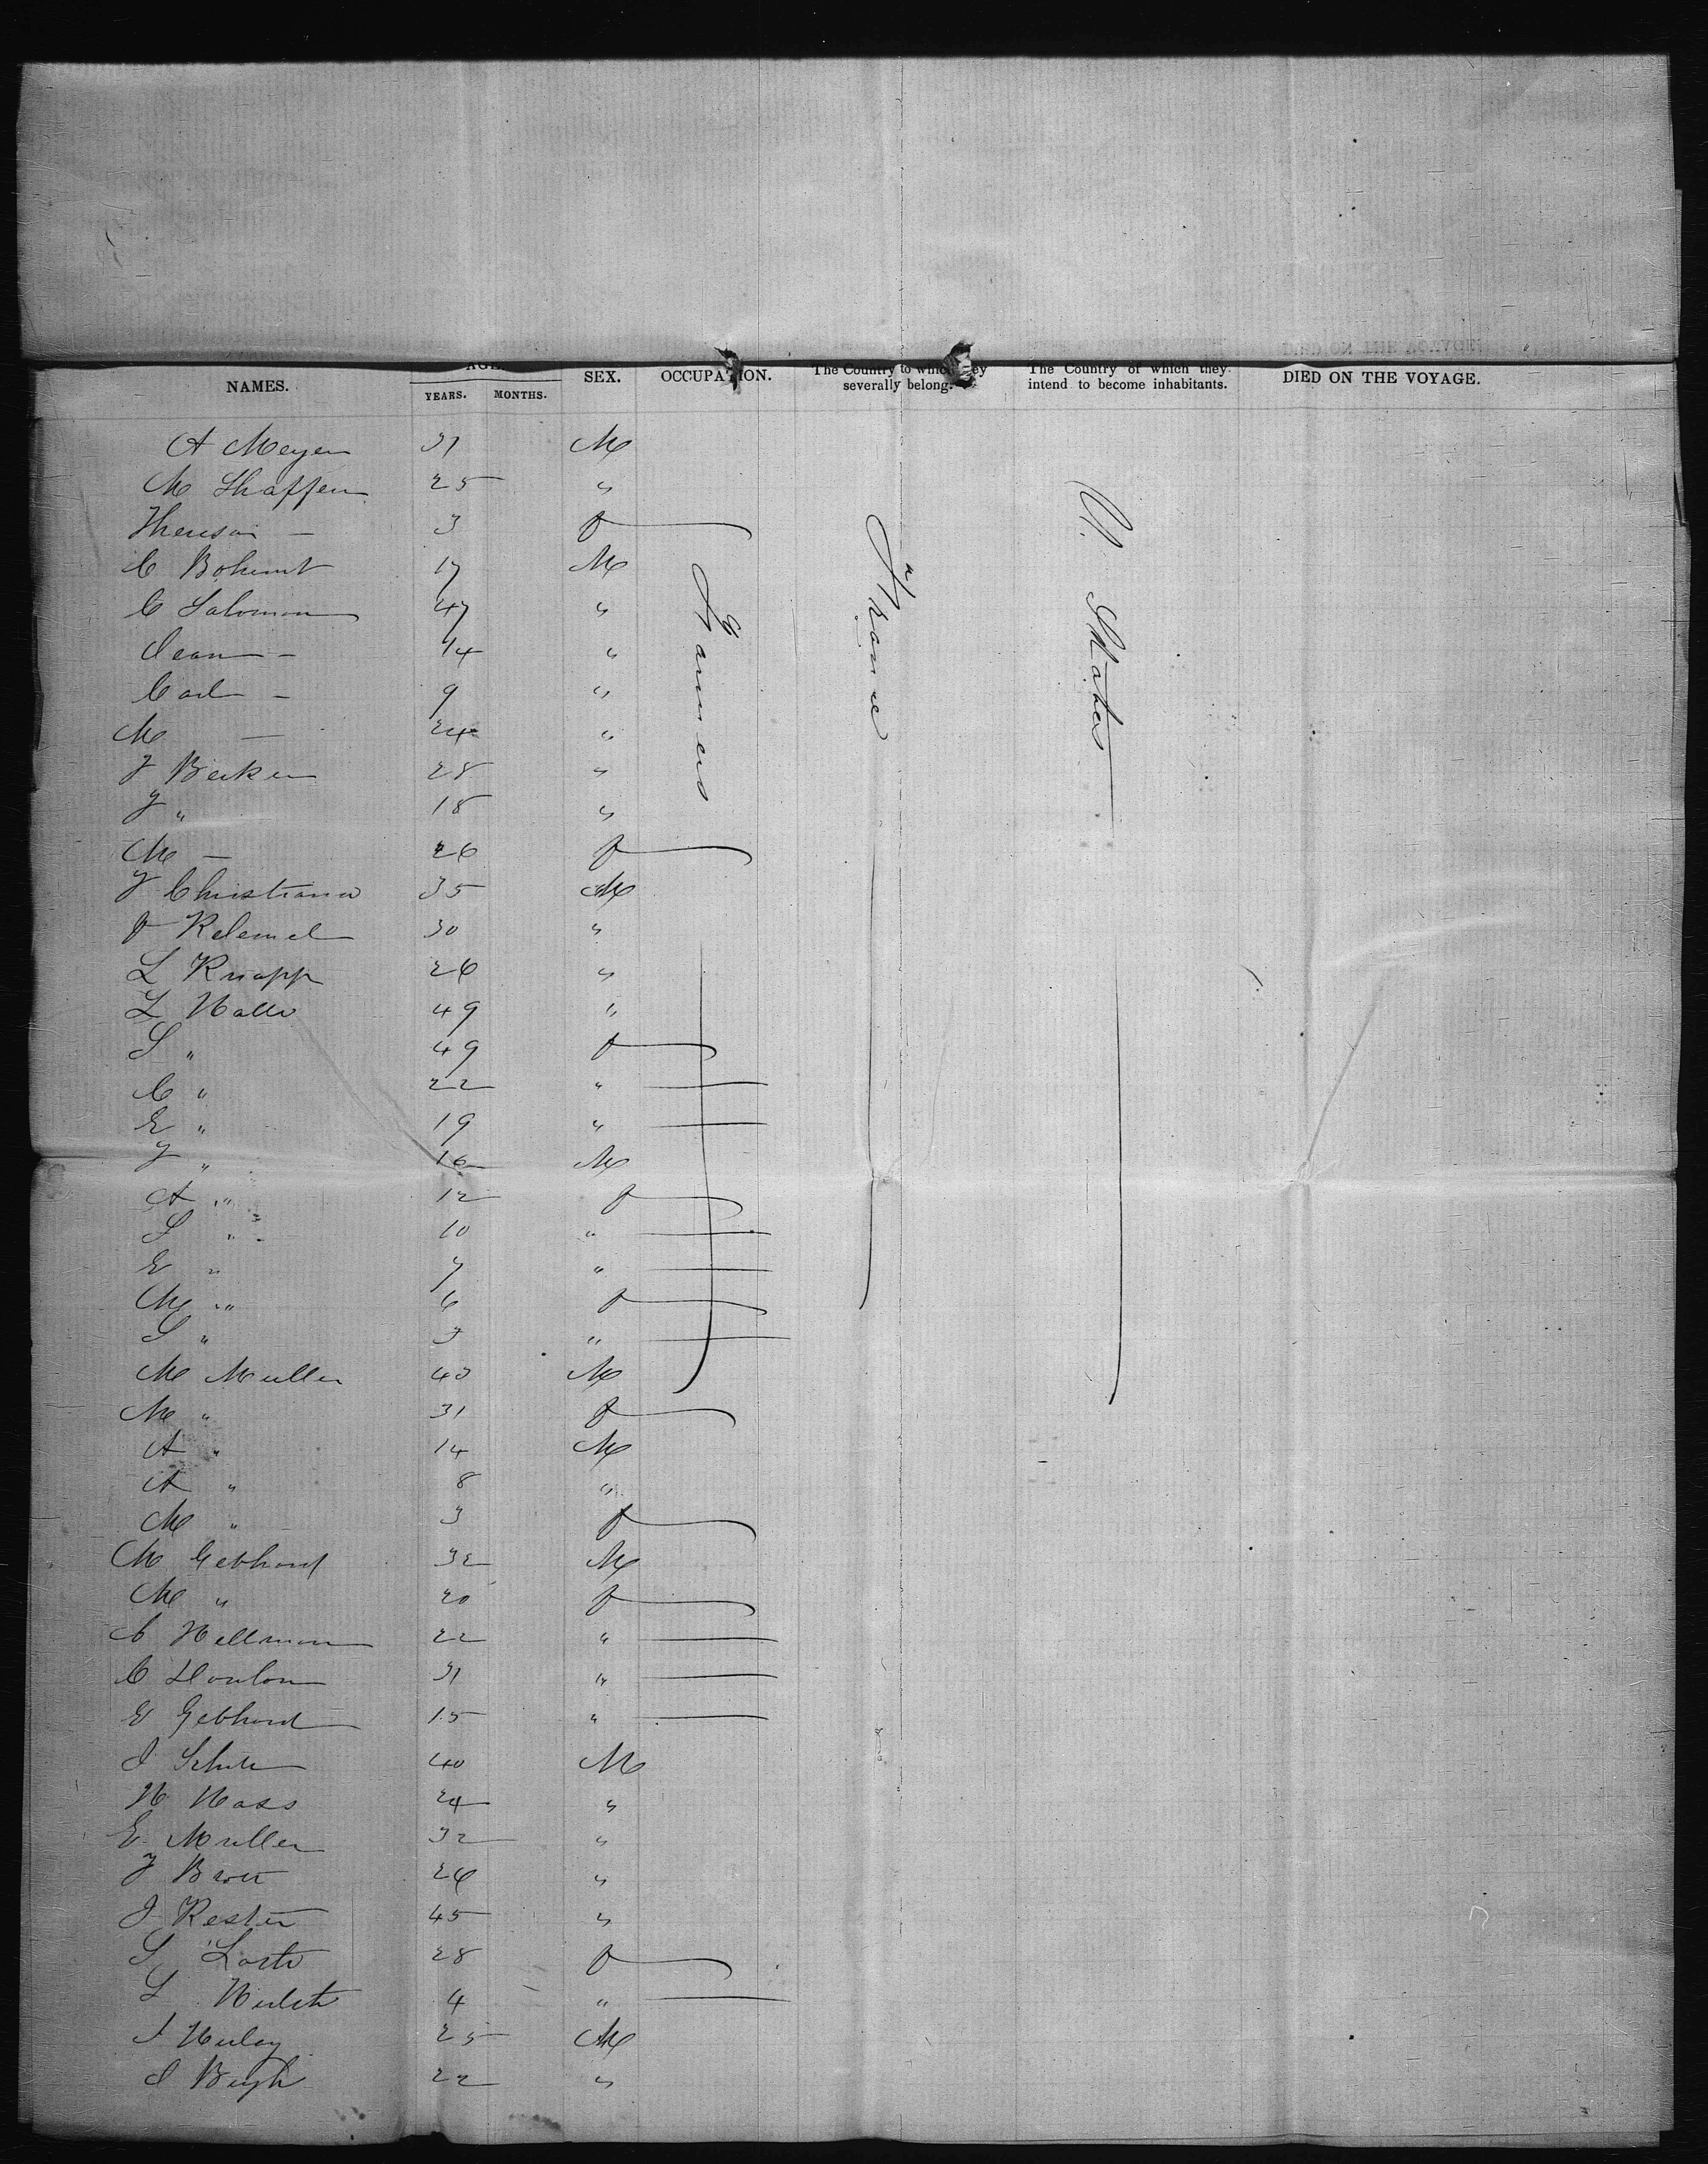 NAMES. AGE. SEX. OCCUPATION. The Country to which they severally belong. The Country of which they intend to become inhabitants. DIED ON THE VOYAGE.
YEARS. MONTHS.
A Meyer 31 M
M Shaffer 25 "
Theresa — 3 F
C Bohunt 17 M
C Salomon 47 "
Jean — 14 "
Carl — 9 "
M — 24 "
J Becker 28 "
J " 18 "
M — 26 F
J Christiana 35 M
F Kelemel 30 "
L Knapp 26 "
L Halle 49 "
S " 49 F
C " 22 "
E " 19 "
J " 16 M
A " 12 F
S " 10 "
E " 7 "
M " 6 F
S " 3 "
M Muller 40 M
M " 31 F
A " 14 M
A " 8 "
M " 3 F
M Gebhard 32 M
M " 20 F
C Hellman 22 "
C 31 "
E Gebhard 15 "
J 40 M
H Hass 24 "
E Muller 32 "
J Brott 26 "
J Rester 45 "
S Lorts 28 F
L 4 "
J 25 M
J 22 "
Farmers
France
U. States